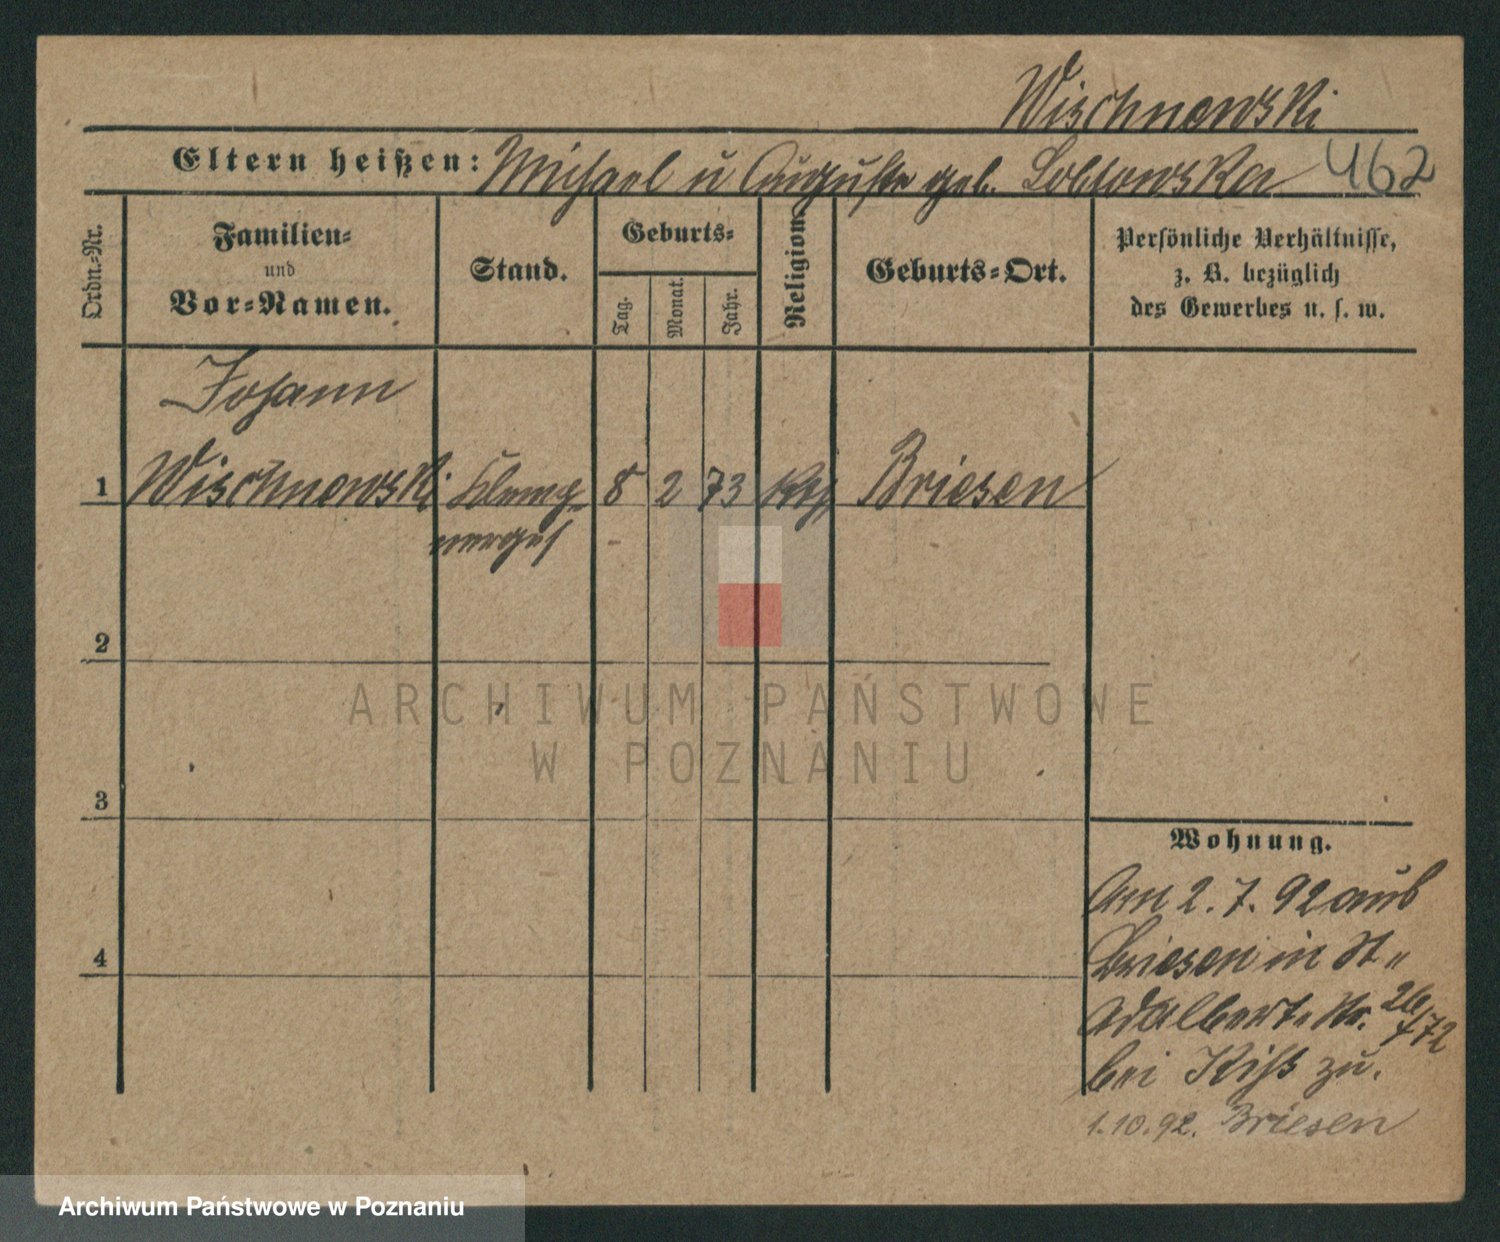 Wischnewski
Eltern heißen: Michael u Auguste geb. Lobkowska 462
Ordn.-Nr.
Familien-
und
Vor-Namen.
Stand.
Geburts-
Tag.
Monat.
Jahr.
Religion.
Geburts-Ort.
Persönliche Verhältnisse,
z. B. bezüglich
des Gewerbes u. s. w.
Johann
1 Wischnewski Klemp- 8 2 73 kth Briesen
nerges
2
3
4
Wohnung.
Am 2. 7. 92 aus
Briesen in St.
Adalbert. Str. 26/72
bei Kiss zu.
1.10.92. Briesen
ARCHIWUM PAŃSTWOWE
W POZNANIU
Archiwum Państwowe w Poznaniu